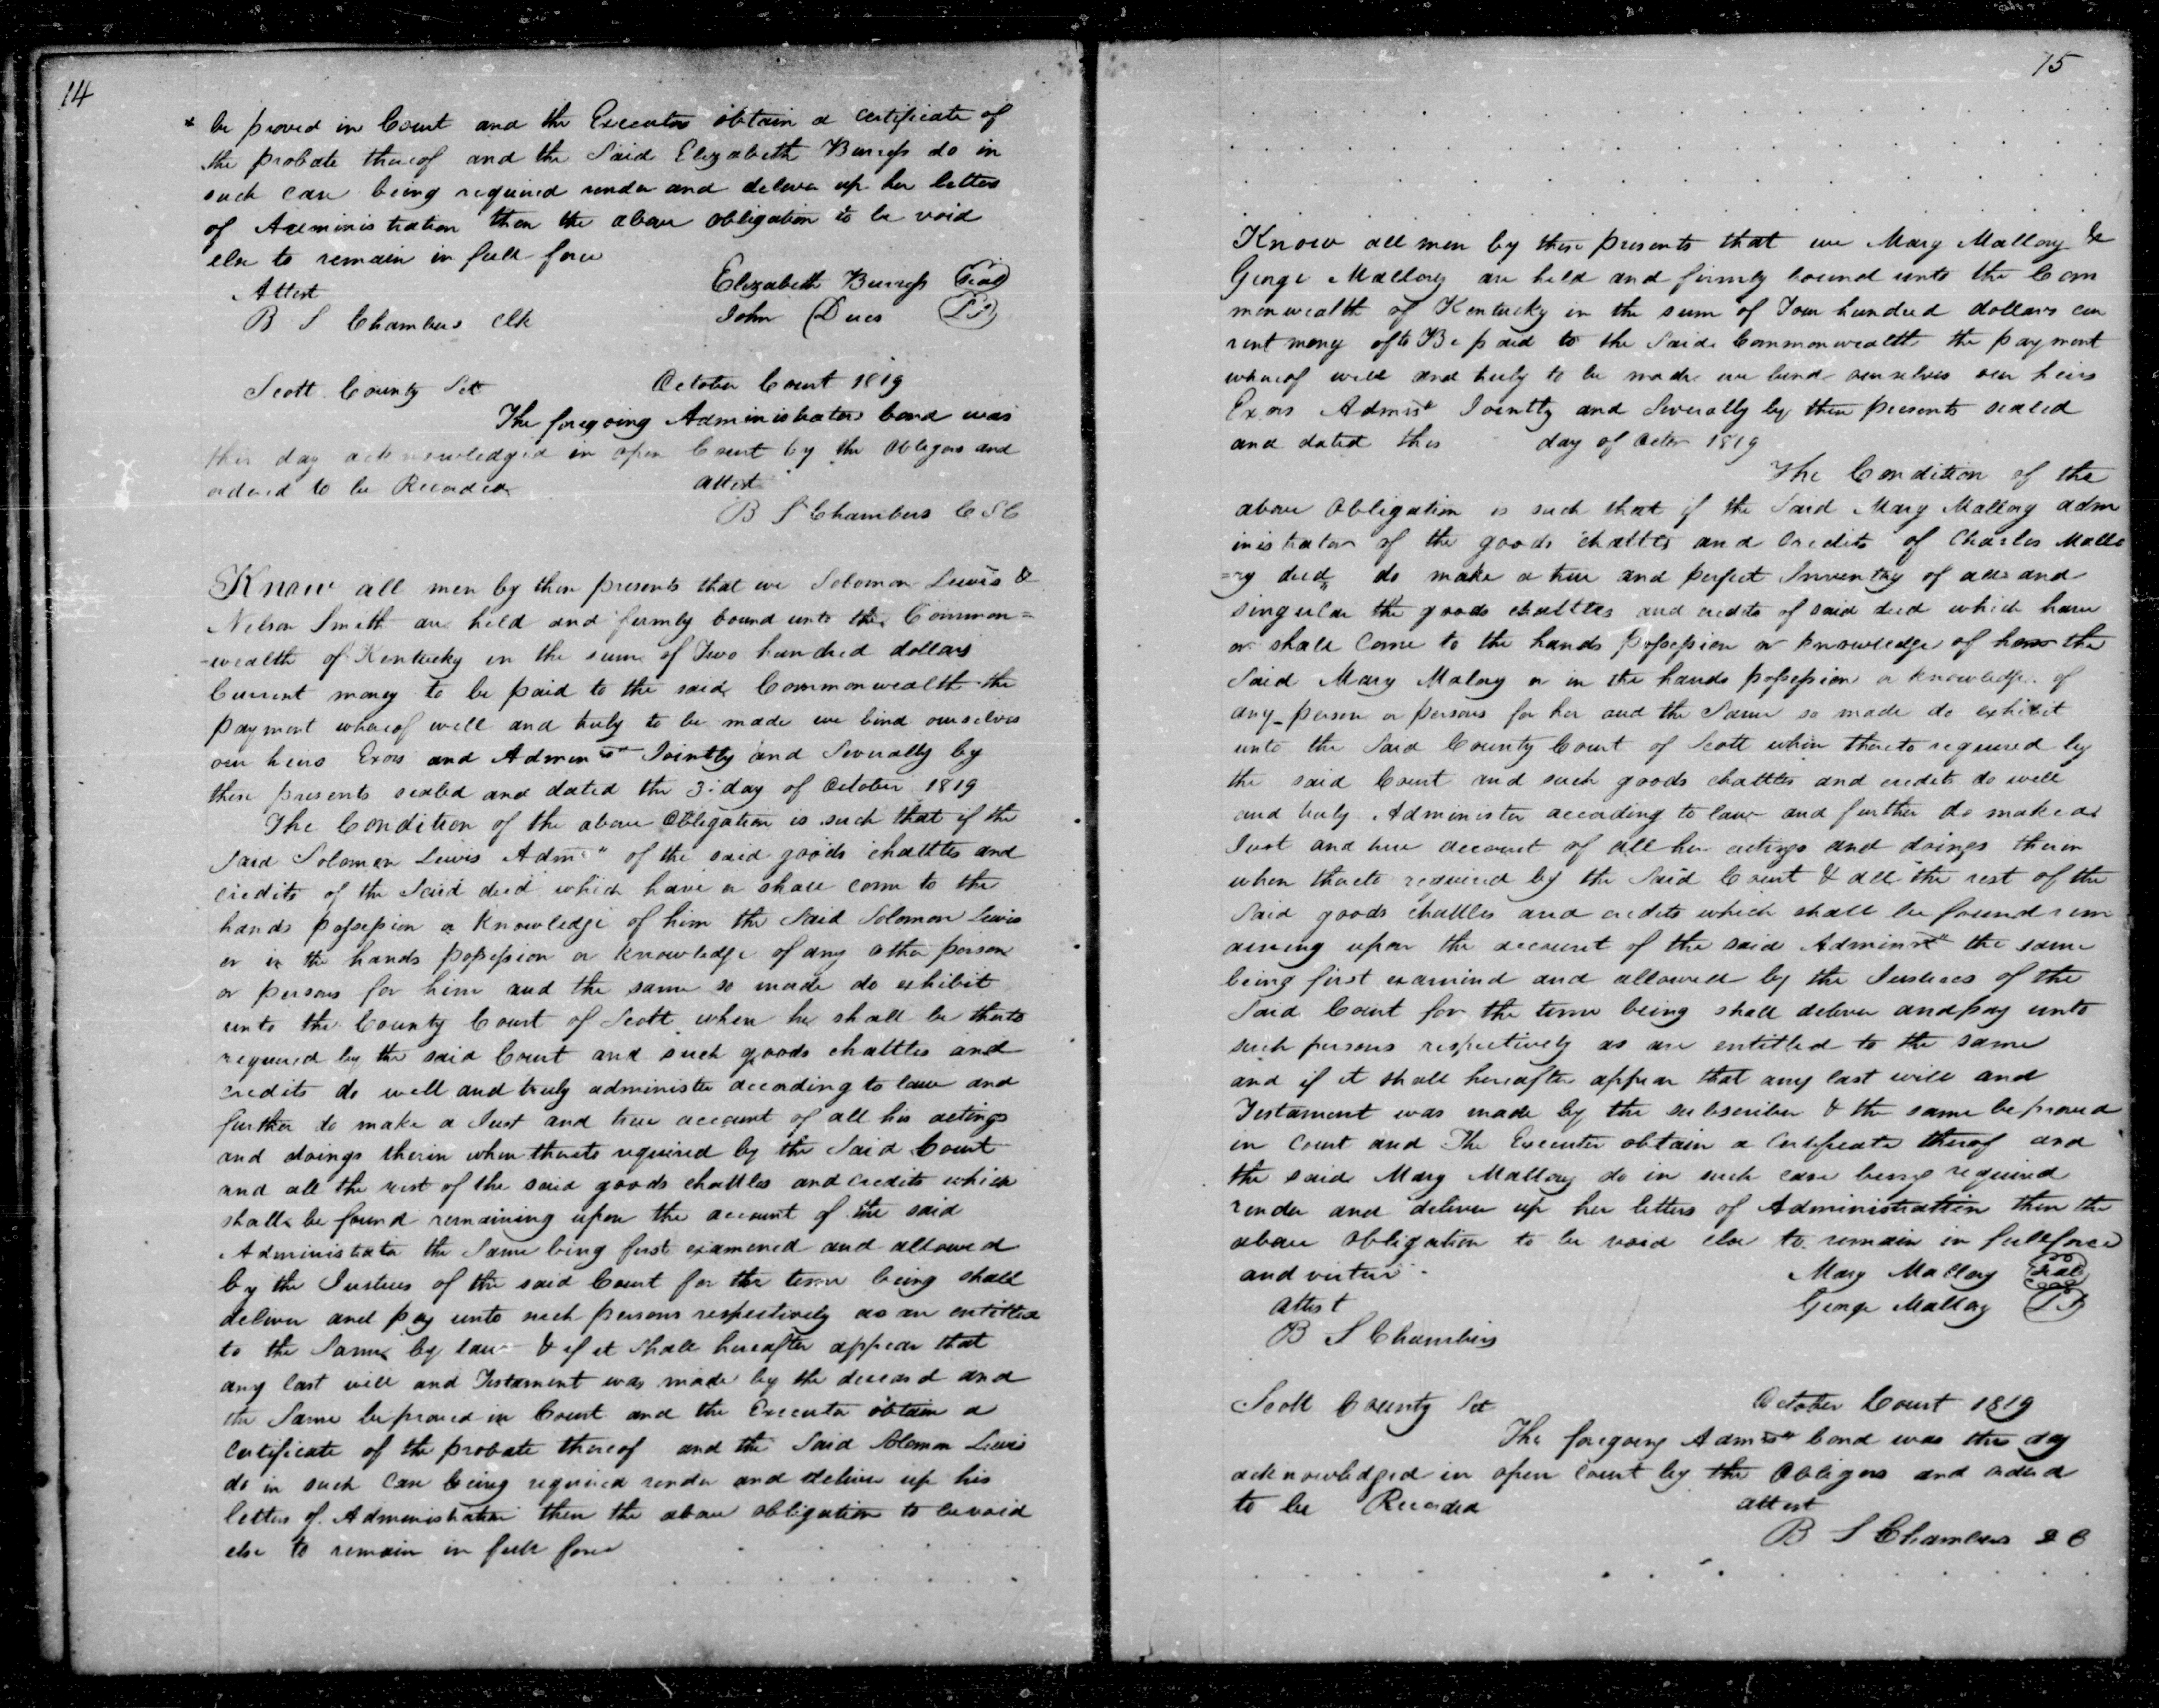 14
* be proved in Court and the Executor obtain a certificate of
the probate thereof and the Said Elizabeth Burress do in
such case being required render and deliver up her letters
of Administration then the above obligation to be void
else to remain in full force
Attest
Elizabeth Burress Seal
B S Chambers Clk
John Dues LS
Scott County Sct
October Court 1819
The foregoing Administrators bond was
this day acknowledged in open Court by the Obligors and
ordered to be Recorded
attest
B S Chambers C S C
Know all men by these presents that we Solomon Lewis &
Nelson Smith are held and firmly bound unto the Common=
-wealth of Kentucky in the sum of Two hundred dollars
Current money to be paid to the said Commonwealth the
payment whereof well and truly to be made we bind ourselves
our heirs Exors and Admors Jointly and Severally by
these presents sealed and dated the 3: day of October 1819
The Condition of the above Obligation is such that if the
Said Solomon Lewis Admr of the said goods chattles and
credits of the Said decd which have or shall come to the
hands possession or knowledge of him the Said Solomon Lewis
or in the hands possession or knowledge of any other person
or persons for him and the same so made do exhibit
unto the County Court of Scott when he shall be thereto
required by the said Court and such goods chattles and
credits do well and truly administer according to law and
further do make a Just and true account of all his actings
and doings therein when thereto required by the Said Court
and all the rest of the said goods chattles and credits which
shall be found remaining upon the account of the said
Administrator the Same being first examened and allowed
by the Justices of the said Court for the time being shall
deliver and pay unto such persons respectively as are entitled
to the Same by law & if it Shall hereafter appear that
any last will and Testament was made by the deceasd and
the Same be proved in Court and the Executor obtain a
certificate of the probate thereof and the Said Solomon Lewis
do in such case being required render and deliver up his
letters of Administration then the above obligation to be void
else to remain in full force
15
Know all men by these presents that we Mary Mallory &
George Mallory are held and firmly bound unto the Com
monwealth of Kentucky in the sum of Four hundred dollars cur
rent money to Be paid to the Said Commonwealth the payment
whereof well and truly to be made we bind ourselves our heirs
Exors Admrs Jointly and Severally by these presents sealed
and dated this day of Octr 1819
The Condition of the
above Obligation is such that if the Said Mary Mallory adm
inistrator of the goods chattles and Credits of Charles Mallo
=ry decd do make a true and perfect Inventry of all and
singular the goods chattles and credits of said decd which have
or shall Come to the hands possession or knowledge of her the
Said Mary Malory or in the hands possession or knowledge of
any person or persons for her and the Same so made do exhibit
unto the Said County Court of Scott when thereto required by
the said Court and such goods chattles and credits do well
and truly Administer according to law and further do make a
Just and true account of all her actings and doings therein
when thereto required by the Said Court & all the rest of the
Said goods chattles and credits which shall be found rem
aining upon the account of the said Adminrs the same
being first examined and allowed by the Justices of the
Said Court for the time being shall deliver and pay unto
such persons respectively as are entitled to the same
and if it shall hereafter appear that any last will and
Testament was made by the subscriber & the same be proved
in court and The Executor obtain a Certificate thereof and
the said Mary Mallory do in such case being required
render and deliver up her letters of Administration then the
above obligation to be void else to remain in full force
and virtue
Mary Mallory Seal
attest
George Mallory LS
B S Chambers
Scott County Sct
October Court 1819
The foregoing Admrs bond was this day
acknowledged in open Court by the Obligors and orderd
to be Recorded
attest
B S Chambers